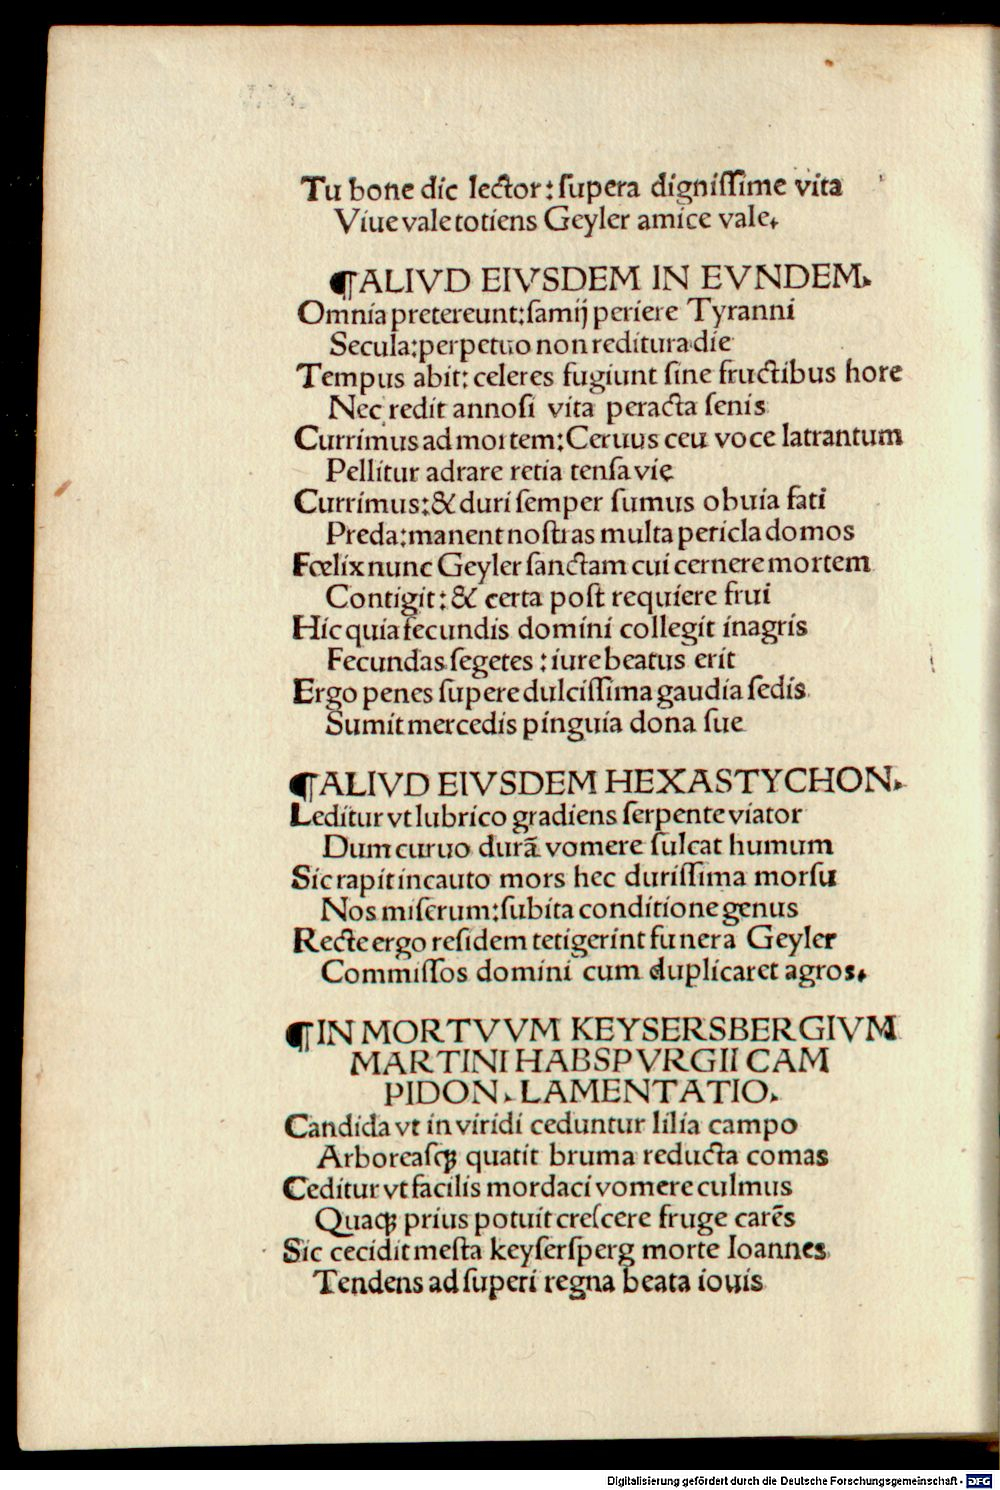 Tu bone dic lector: supera digniſſime vita
Viue vale totiens Geyler amice vale.
¶ALIVD EIVSDEM IN EVNDEM.
Omnia pretereunt: ſamij periere Tyranni
Secula: perpetuo non reditura die
Tempus abit: celeres fugiunt ſine fructibus hore
Nec redit annoſi vita peracta ſenis
Currimus ad mortem: Ceruus ceu voce latrantum
Pellitur ad rare retia tenſa vię
Currimus: & duri ſemper ſumus obuia fati
Preda: manent noſtras multa pericla domos
Fœlix nunc Geyler ſanctam cui cernere mortem
Contigit: & certa poſt requiere frui
Hic quia fecundis domini collegit in agris
Fecundas ſegetes : iure beatus erit
Ergo penes ſupere dulciſſima gaudia ſedis
Sumit mercedis pinguia dona ſue
¶ALIVD EIVSDEM HEXASTYCHON.
Leditur vt lubrico gradiens ſerpente viator
Dum curuo durã vomere ſulcat humum
Sic rapit incauto mors hec duriſſima morſu
Nos miſerum: ſubita conditione genus
Recte ergo reſidem tetigerint funera Geyler
Commiſſos domini cum duplicaret agros.
¶IN MORTVVM KEYSERSBERGIVM
MARTINI HABSPVRGII CAM
PIDON. LAMENTATIO.
Candida vt in viridi ceduntur lilia campo
Arboreaſqꝫ quatit bruma reducta comas
Ceditur vt facilis mordaci vomere culmus
Quaqꝫ prius potuit creſcere fruge carẽs
Sic cecidit meſta keyſerſperg morte Ioannes
Tendens ad ſuperi regna beata iouis
Digitalisierung gefördert durch die Deutsche Forschungsgemeinschaft - DFG